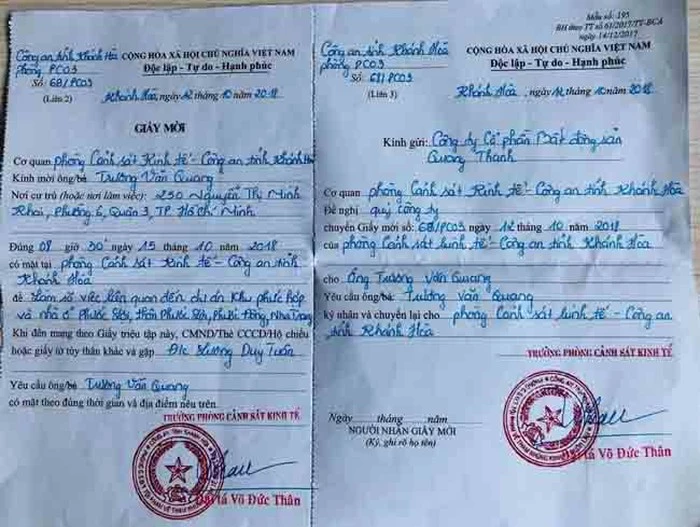 Công an tỉnh Khánh Hòa
phòng PC03
Số: 68/PC03
(Liên 2)
CỘNG HÒA XÃ HỘI CHỦ NGHĨA VIỆT NAM
Độc lập - Tự do - Hạnh phúc
Khánh Hòa, ngày 12 tháng 10 năm 2018
GIẤY MỜI
Cơ quan phòng Cảnh sát Kinh tế - Công an tỉnh Khánh Hòa
Kính mời ông/bà: Trương Văn Quang
Nơi cư trú (hoặc nơi làm việc): 250 Nguyễn Thị Minh
Khai, Phường 6, Quận 3, TP. Hồ Chí Minh
Đúng 08 giờ 30 ngày 15 tháng 10 năm 2018
có mặt tại phòng Cảnh sát Kinh tế - Công an tỉnh
Khánh Hòa
để Làm rõ việc liên quan đến dự án Khu phức hợp
và nhà ở Phước Sơn, thôn Phước Sơn, Phước Đồng, Nha Trang
Khi đến mang theo Giấy triệu tập này, CMND/Thẻ CCCD/Hộ chiếu
hoặc giấy tờ tùy thân khác và gặp Đ/c Lương Duy Tuấn
Yêu cầu ông/bà Trương Văn Quang
có mặt theo đúng thời gian và địa điểm nêu trên.
TRƯỞNG PHÒNG CẢNH SÁT KINH TẾ
Đại tá Võ Đức Thân
Mẫu số: 195
BH theo TT số 61/2017/TT-BCA
ngày 14/12/2017
Công an tỉnh Khánh Hòa
phòng PC03
Số: 611/PC03
(Liên 3)
CỘNG HÒA XÃ HỘI CHỦ NGHĨA VIỆT NAM
Độc lập - Tự do - Hạnh phúc
Khánh Hòa, ngày 12 tháng 10 năm 2018
Kính gửi: Công ty Cổ phần Bất động sản
Quang Thanh
Cơ quan phòng Cảnh sát Kinh tế - Công an tỉnh Khánh Hòa
Đề nghị quý công ty
chuyển Giấy mời số: 68/PC03 ngày 12 tháng 10 năm 2018
của phòng Cảnh sát kinh tế - Công an tỉnh Khánh Hòa
cho Ông Trương Văn Quang
Yêu cầu ông/bà: Trương Văn Quang
ký nhận và chuyển lại cho phòng Cảnh sát kinh tế - Công an
tỉnh Khánh Hòa
TRƯỞNG PHÒNG CẢNH SÁT KINH TẾ
Ngày tháng năm
NGƯỜI NHẬN GIẤY MỜI
(Ký, ghi rõ họ tên)
Đại tá Võ Đức Thân